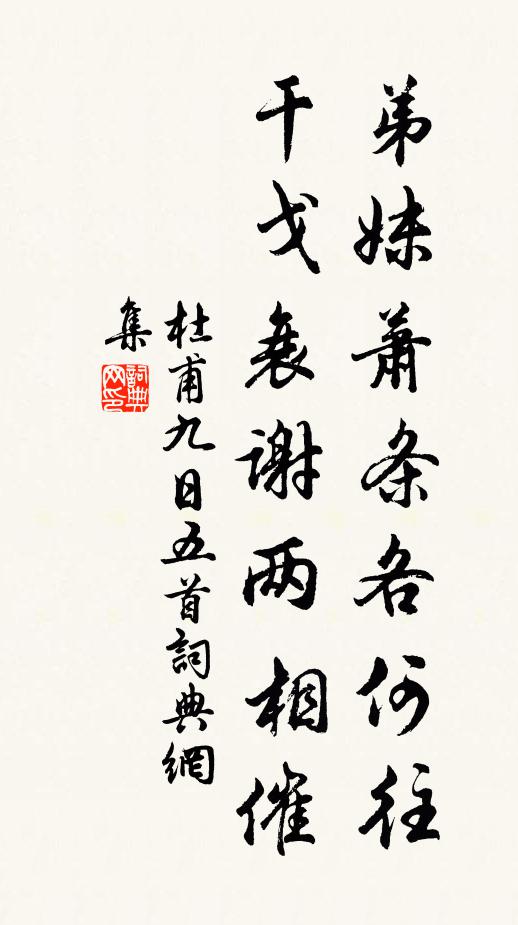 弟妹萧条各何往
干戈衰谢两相催
杜甫九日五首詞典網
集
詞典
网印